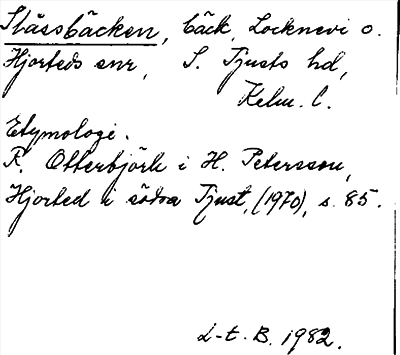 Stässbäcken, bäck, Locknevi o.
Hjorteds snr, S. Tjusts hd,
Kalm. l.
Etymologi.
R. Otterbjörk i H. Petersson,
Hjorted i södra Tjust, (1970), s. 85.
L-t. B. 1982.